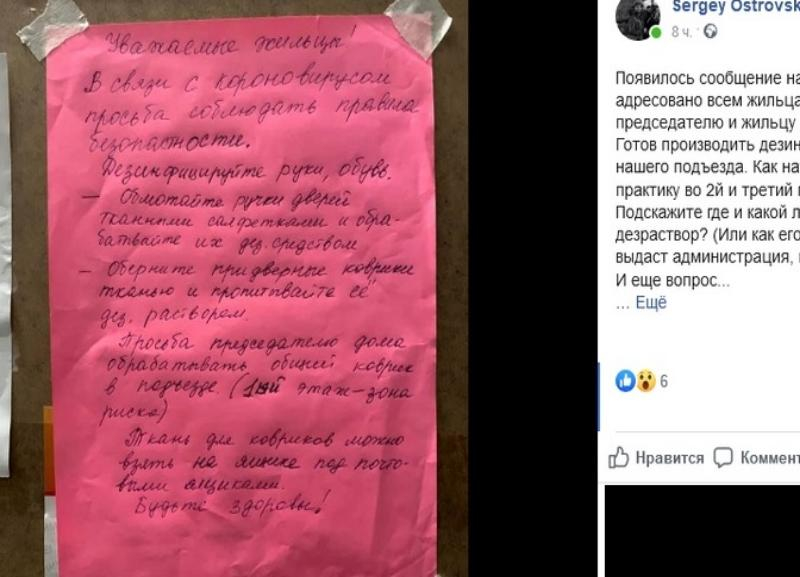 Уважаемые жильцы!
В связи с короновирусом
просьба соблюдать правила
безопастности.
Дезинфицируйте руки, обувь.
— Обмотайте ручки дверей
тканными салфетками и обра-
батвайте их дез. средством
— Оберните придверные коврики
тканью и пропитвайте её
дез. раствором.
Просьба председателю дома
обрабатывать общий коврик
в подъезде. (1й этаж-зона
риска)
Ткань для ковриков можно
взять на ящике под почто-
выми ящиками.
Будьте здоровы!
Sergey Ostrovsk
8 ч.
Появилось сообщение на
адресовано всем жильца
председателю и жильцу
Готов производить дезин
нашего подъезда. Как на
практику во 2й и третий
Подскажите где и какой л
дезраствор? (Или как его
выдаст администрация,
И еще вопрос...
... Ещё
6
Нравится Коммент